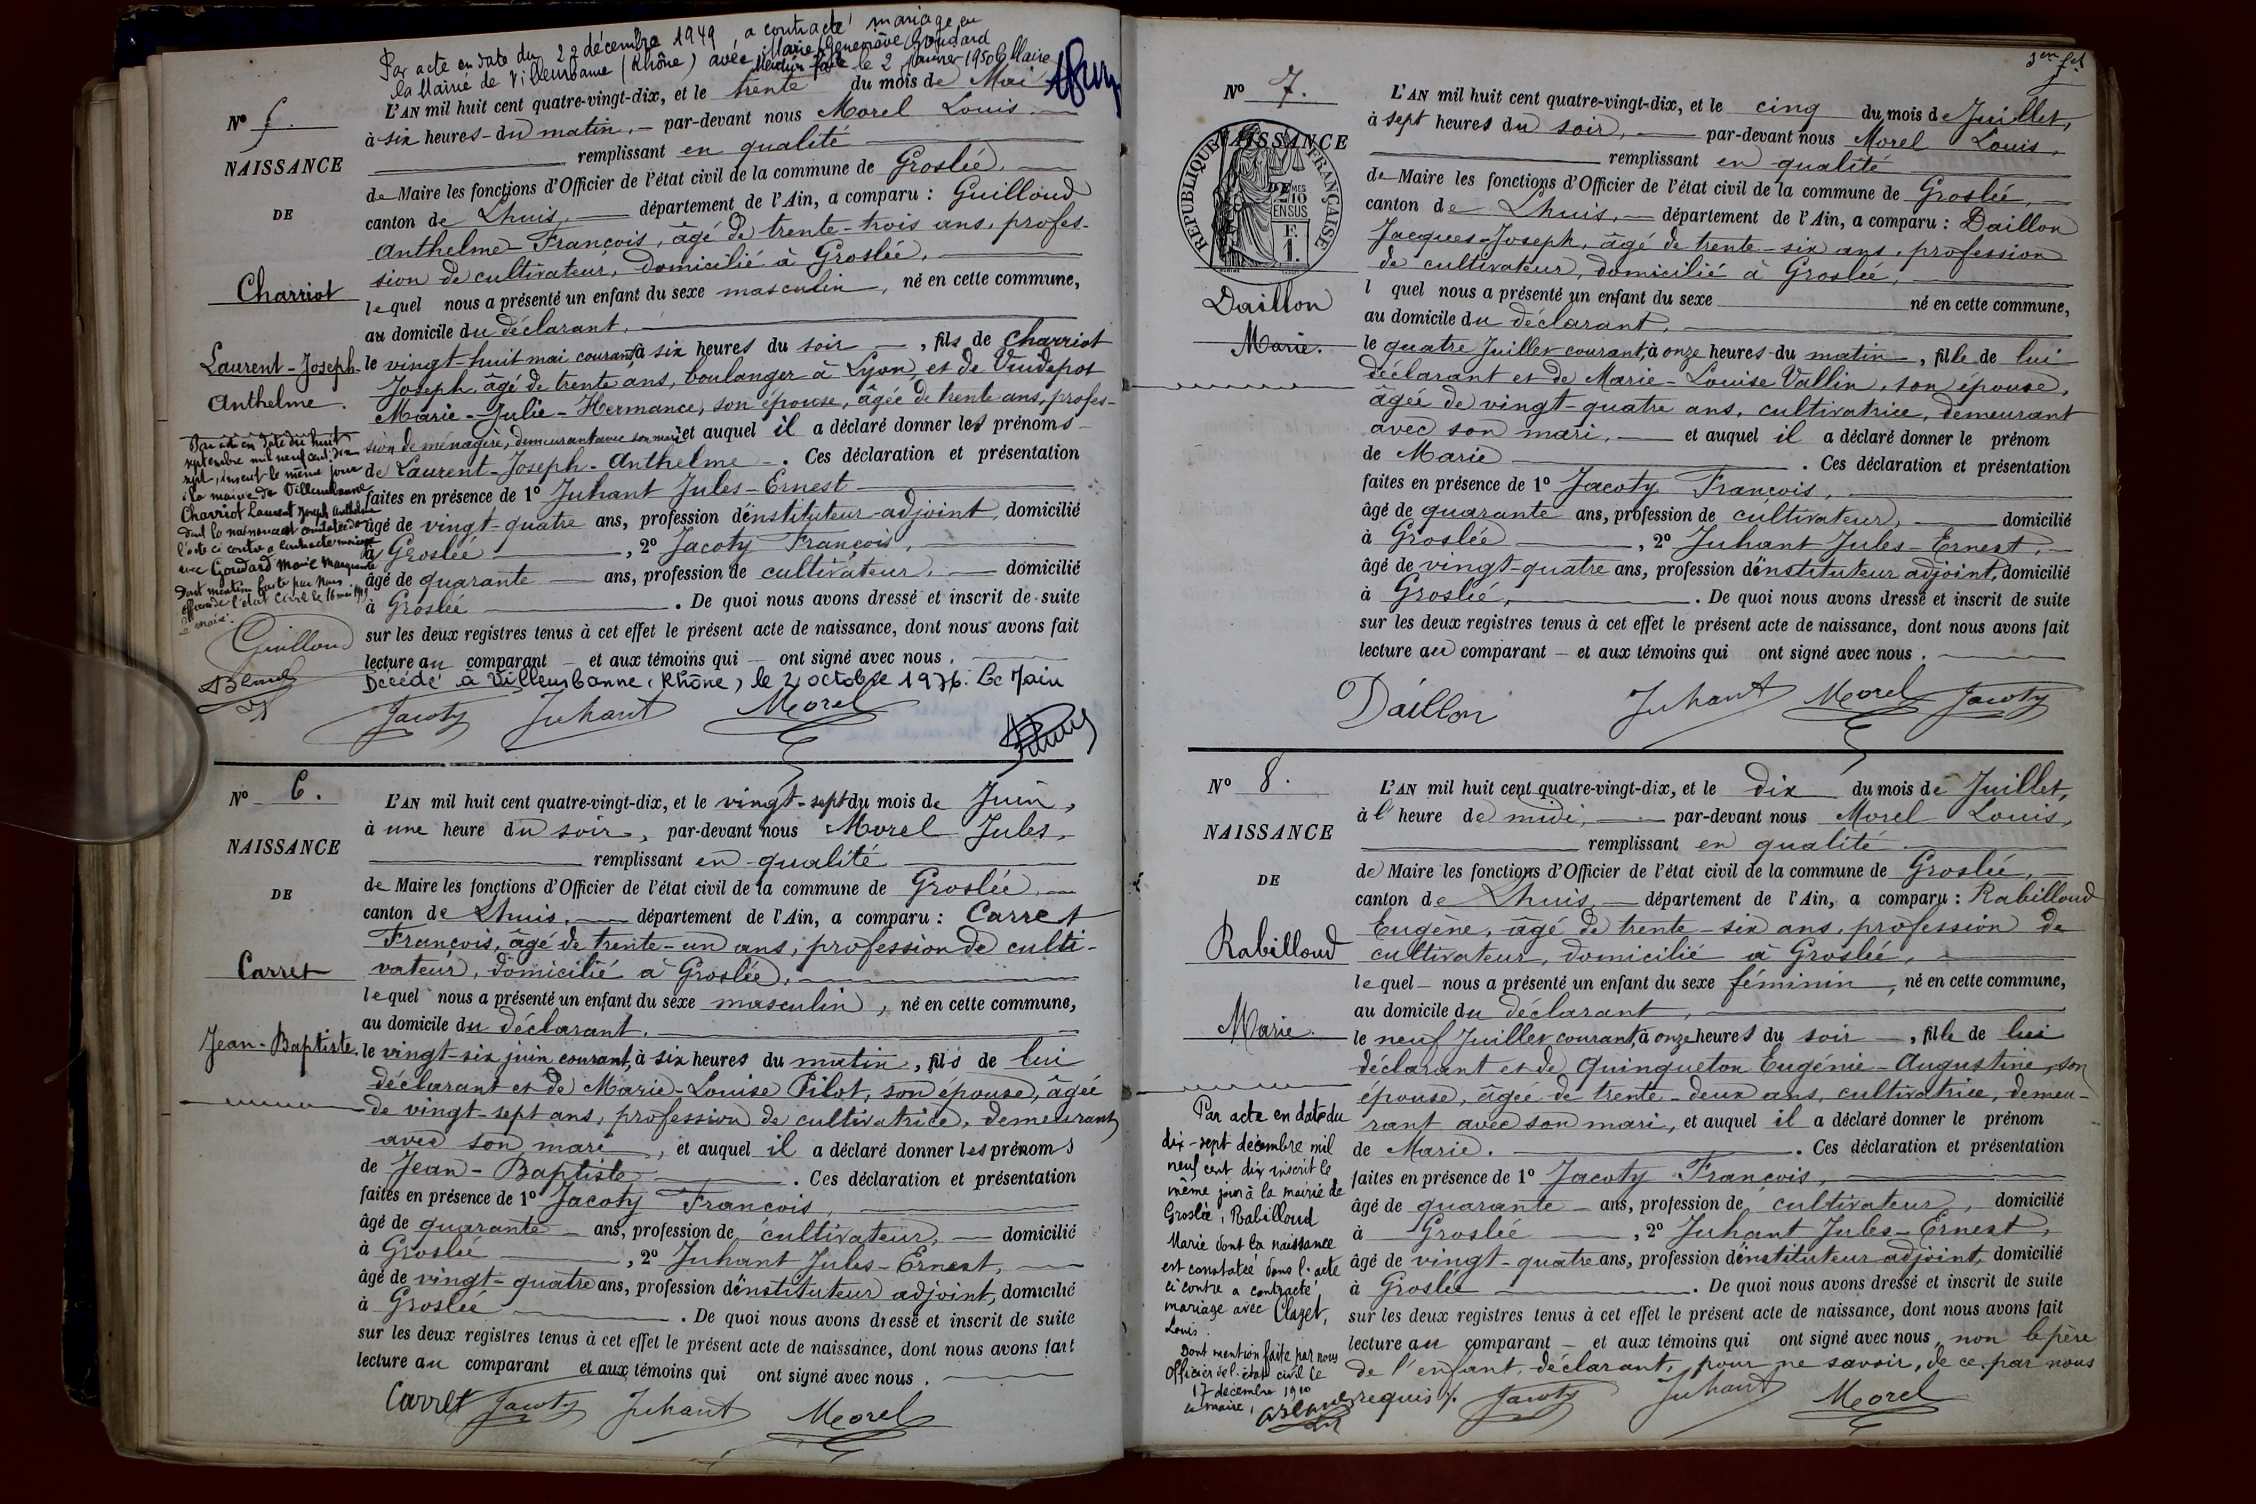 Par acte en date du 22 décembre 1949, a contracté mariage en
la Mairie de Villeurbanne (Rhône) avec Marie Geneviève Goudard
Mention faite le 2 Janvier 1950 Le Maire
N° 5.
NAISSANCE
DE
Charriot
Laurent-Joseph-
Anthelme.
L'AN mil huit cent quatre-vingt-dix, et le trente du mois de Mai
à six heures du matin, par-devant nous Morel Louis
remplissant en qualité
de Maire les fonctions d'Officier de l'état civil de la commune de Groslée,
canton de Lhuis, département de l'Ain, a comparu : Guilloud
Anthelme-François, âgé de trente-trois ans, profes-
sion de cultivateur, domicilié à Groslée,
lequel nous a présenté un enfant du sexe masculin, né en cette commune,
au domicile du déclarant,
le vingt-huit mai courant, à six heures du soir, fils de Charriot
Joseph âgé de trente ans, boulanger à Lyon et de
Marie-Julie-Hermance, son épouse, âgée de trente ans, profes-
sion de ménagère, demeurant avec son mari et auquel il a déclaré donner les prénoms
de Laurent-Joseph-Anthelme. Ces déclaration et présentation
faites en présence de 1° Juhant Jules-Ernest
âgé de vingt-quatre ans, profession d'instituteur-adjoint, domicilié
à Groslée, 2° Jacoty François,
âgé de quarante ans, profession de cultivateur, domicilié
à Groslée. De quoi nous avons dressé et inscrit de suite
sur les deux registres tenus à cet effet le présent acte de naissance, dont nous avons fait
lecture au comparant et aux témoins qui ont signé avec nous.
Décédé à Villeurbanne (Rhône) le 2 octobre 1976. Le Maire
Par acte en date du huit
septembre mil neuf cent dix
sept, inscrit le même jour
à la mairie de Villeurbanne
Charriot Laurent Joseph Anthelme
dont la naissance est constatée dans
l'acte ci contre a contracté mariage
avec Goudard Marie Marguerite
Dont mention faite par Nous
officier de l'état civil le 16 mai 1919
Le maire.
Guilloud
Jacoty Juhant Morel
N° 6.
NAISSANCE
DE
Carret
Jean-Baptiste.
L'AN mil huit cent quatre-vingt-dix, et le vingt-sept du mois de Juin,
à une heure du soir, par-devant nous Morel Jules,
remplissant en qualité
de Maire les fonctions d'Officier de l'état civil de la commune de Groslée,
canton de Lhuis, département de l'Ain, a comparu : Carret
François, âgé de trente-un ans, profession de culti-
vateur, domicilié à Groslée,
lequel nous a présenté un enfant du sexe masculin, né en cette commune,
au domicile du déclarant.
le vingt-six juin courant, à six heures du matin, fils de lui
déclarant et de Marie-Louise Pilot, son épouse, âgée
de vingt-sept ans, profession de cultivatrice, demeurant
avec son mari, et auquel il a déclaré donner les prénoms
de Jean-Baptiste. Ces déclaration et présentation
faites en présence de 1° Jacoty François,
âgé de quarante ans, profession de cultivateur, domicilié
à Groslée, 2° Juhant Jules-Ernest,
âgé de vingt-quatre ans, profession d'instituteur adjoint, domicilié
à Groslée. De quoi nous avons dressé et inscrit de suite
sur les deux registres tenus à cet effet le présent acte de naissance, dont nous avons fait
lecture au comparant et aux témoins qui ont signé avec nous.
Carret Jacoty Juhant Morel
N° 7.
NAISSANCE
RÉPUBLIQUE FRANÇAISE
2/10
EN SUS
F.
1.
Daillon
Marie.
L'AN mil huit cent quatre-vingt-dix, et le cinq du mois de Juillet,
à sept heures du soir, par-devant nous Morel Louis,
remplissant en qualité
de Maire les fonctions d'Officier de l'état civil de la commune de Groslée,
canton de Lhuis, département de l'Ain, a comparu : Daillon
Jacques-Joseph, âgé de trente-six ans, profession
de cultivateur, domicilié à Groslée,
l quel nous a présenté un enfant du sexe né en cette commune,
au domicile du déclarant,
le quatre Juillet courant, à onze heures du matin, fille de lui
déclarant et de Marie-Louise Vallin, son épouse,
âgée de vingt-quatre ans, cultivatrice, demeurant
avec son mari, et auquel il a déclaré donner le prénom
de Marie. Ces déclaration et présentation
faites en présence de 1° Jacoty François,
âgé de quarante ans, profession de cultivateur, domicilié
à Groslée, 2° Juhant Jules-Ernest,
âgé de vingt-quatre ans, profession d'instituteur adjoint, domicilié
à Groslée,. De quoi nous avons dressé et inscrit de suite
sur les deux registres tenus à cet effet le présent acte de naissance, dont nous avons fait
lecture au comparant et aux témoins qui ont signé avec nous.
Daillon Juhant Morel Jacoty
N° 8.
NAISSANCE
DE
Rabilloud
Marie.
L'AN mil huit cent quatre-vingt-dix, et le dix du mois de Juillet,
à l'heure de midi, par-devant nous Morel Louis,
remplissant en qualité
de Maire les fonctions d'Officier de l'état civil de la commune de Groslée,
canton de Lhuis, département de l'Ain, a comparu : Rabilloud
Eugène, âgé de trente-six ans, profession de
cultivateur, domicilié à Groslée,
lequel nous a présenté un enfant du sexe féminin, né en cette commune,
au domicile du déclarant,
le neuf Juillet courant, à onze heures du soir, fille de lui
déclarant et de Quinqueton Eugénie-Augustine, son
épouse, âgée de trente-deux ans, cultivatrice, demeu-
rant avec son mari, et auquel il a déclaré donner le prénom
de Marie. Ces déclaration et présentation
faites en présence de 1° Jacoty François,
âgé de quarante ans, profession de cultivateur, domicilié
à Groslée, 2° Juhant Jules-Ernest,
âgé de vingt-quatre ans, profession d'instituteur adjoint, domicilié
à Groslée. De quoi nous avons dressé et inscrit de suite
sur les deux registres tenus à cet effet le présent acte de naissance, dont nous avons fait
lecture au comparant et aux témoins qui ont signé avec nous, non le père
de l'enfant, déclarant, pour ne savoir, de ce par nous
requis. Jacoty Juhant Morel
Par acte en date du
dix-sept décembre mil
neuf cent dix inscrit le
même jour à la mairie de
Groslée, Rabilloud
Marie dont la naissance
est constatée dans l'acte
ci contre a contracté
mariage avec Clazet,
Louis.
Dont mention faite par nous
Officier de l'état civil le
17 décembre 1910
Le maire,